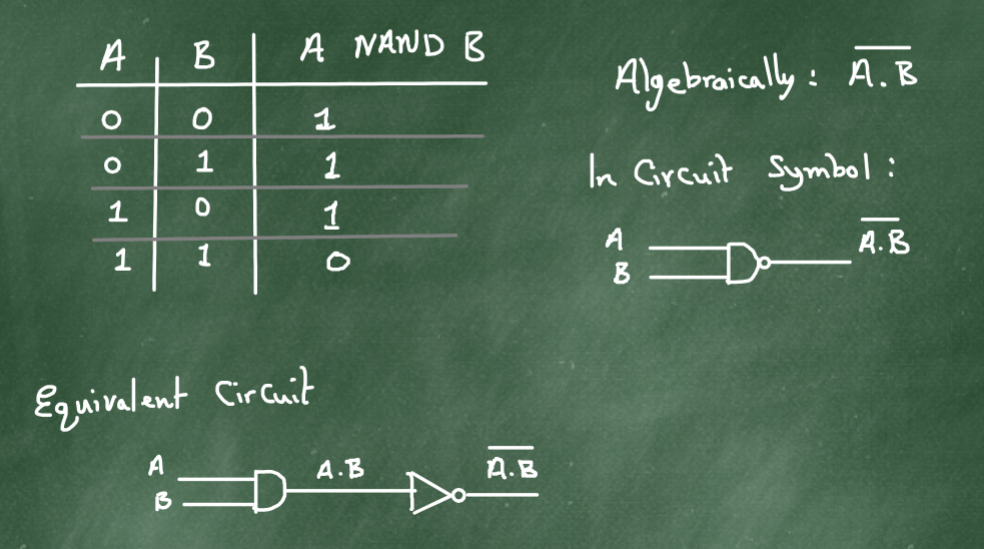 A B A NAND B
0 0 1
0 1 1
1 0 1
1 1 0
Algebraically: A̅.̅B̅
In Circuit Symbol:
A
B
A̅.̅B̅
Equivalent Circuit
A
B
A.B
A̅.̅B̅